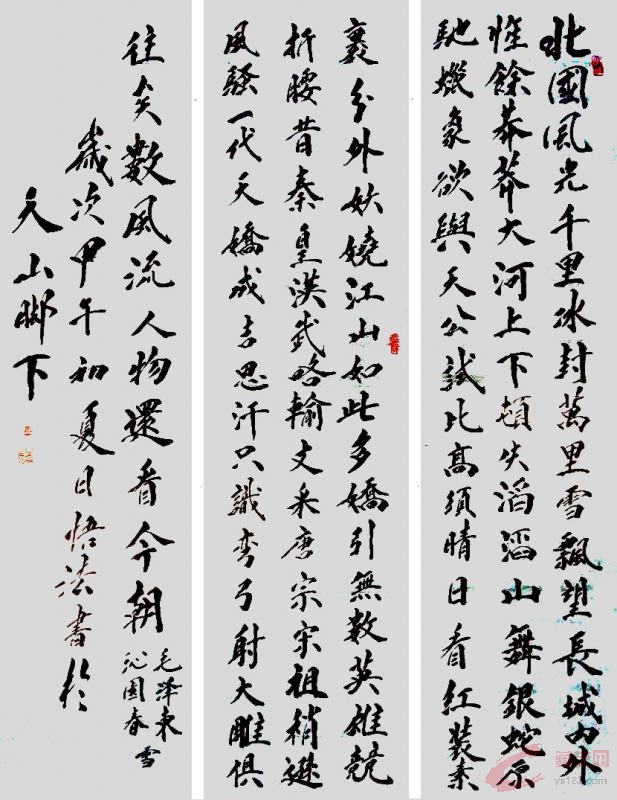 北國風光千里冰封萬里雪飄望長城内外
惟餘莽莽大河上下頓失滔滔山舞銀蛇原
馳蠟象欲與天公試比高須晴日看紅裝素
裹分外妖嬈江山如此多嬌引無数英雄競
折腰昔秦皇漢武略輸文采唐宗宋祖稍遜
風騷一代天嬌成吉思汗只識弯弓射大雕俱
往矣數風流人物還看今朝
毛澤東
沁園春雪
歲次甲午初夏日悟法書於
天山腳下